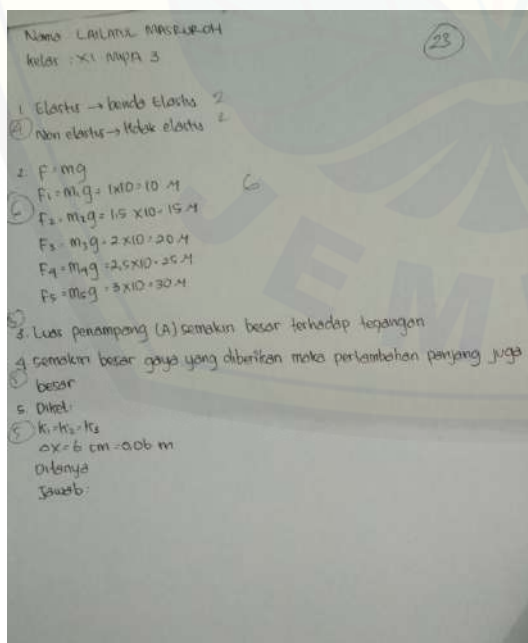 Nama LAILATUL MASRUROH
23
Kelas : XI MIPA 3
1. Elastis → benda Elastis 2
4 Non elastis → tidak elastis 2
2. F = mg
F1 = m1g = 1x10 = 10 N 6
6 F2 = m2g = 1.5 x10 = 15 N
F3 = m3g = 2x10 = 20 N
F4 = m4g = 2,5x10 = 25 N
F5 = m5g = 3x10 = 30 N
3. Luas penampang (A) semakin besar terhadap tegangan
4. semakin besar gaya yang diberikan maka pertambahan panjang juga
besar
5. Diket:
K1=K2=K3
Δx = 6 cm = 0,06 m
Ditanya
Jawab:
JEM